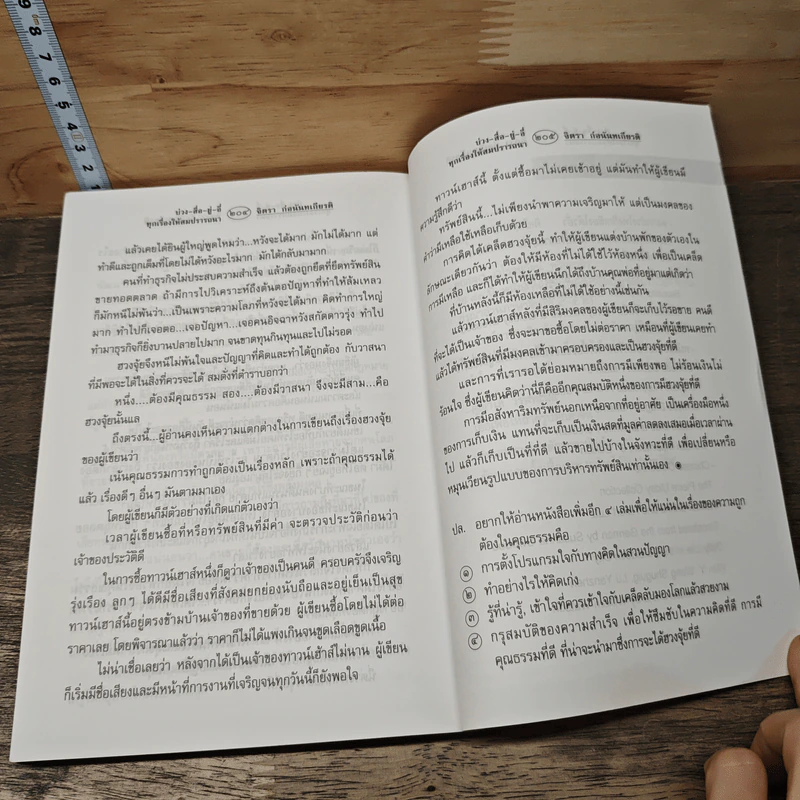 9
8
7
6
5
4
3
2
1
บ่วง-สื่อ-ยู่-อี่
ทุกเรื่องให้สมปรารถนา ๒๐๔ จิตรา ก่อนันทเกียรติ
แล้วเคยได้ยินผู้ใหญ่พูดไหมว่า...หวังจะได้มาก มักไม่ได้มาก แต่
ทำดีและถูกเต็มที่โดยไม่ได้หวังอะไรมาก มักได้กลับมามาก
คนที่ทำธุรกิจไม่ประสบความสำเร็จ แล้วต้องถูกยึดที่ยึดทรัพย์สิน
ขายทอดตลาด ถ้ามีการไปวิเคราะห์ถึงต้นตอปัญหาที่ทำให้ล้มเหลว
ก็มักหนีไม่พ้นว่า...เป็นเพราะความโลภที่หวังจะได้มาก คิดทำการใหญ่
มาก ทำไปก็เจอตอ...เจอปัญหา...เจอคนอิจฉาหวังสกัดดาวรุ่ง ทำไป
ทำมาธุรกิจก็ยิ่งบานปลายไปมาก จนขาดทุนเกินทุนและไปไม่รอด
ฮวงจุ้ยจึงหนีไม่พ้นใจและปัญญาที่คิดและทำได้ถูกต้อง กับวาสนา
ที่มีพอจะได้ในสิ่งที่ควรจะได้ สมดั่งที่ตำราบอกว่า
หนึ่ง....ต้องมีคุณธรรม สอง....ต้องมีวาสนา จึงจะมีสาม...คือ
ฮวงจุ้ยนั้นแล
ถึงตรงนี้...ผู้อ่านคงเห็นความแตกต่างในการเขียนถึงเรื่องฮวงจุ้ย
ของผู้เขียนว่า
เน้นคุณธรรมการทำถูกต้องเป็นเรื่องหลัก เพราะถ้าคุณธรรมได้
แล้ว เรื่องดีๆ อื่นๆ มันตามมาเอง
โดยผู้เขียนก็มีตัวอย่างที่เกิดแก่ตัวเองว่า
เวลาผู้เขียนซื้อที่หรือทรัพย์สินที่มีค่า จะตรวจประวัติก่อนว่า
เจ้าของประวัติดี
ในการซื้อทาวน์เฮาส์หนึ่งก็ดูว่าเจ้าของเป็นคนดี ครอบครัวจึงเจริญ
รุ่งเรือง ลูกๆ ได้ดีมีชื่อเสียงที่สังคมยกย่องนับถือและอยู่เย็นเป็นสุข
ทาวน์เฮาส์นี้อยู่ตรงข้ามบ้านเจ้าของที่ขายด้วย ผู้เขียนซื้อโดยไม่ได้ต่อ
ราคาเลย โดยพิจารณาแล้วว่า ราคาก็ไม่ได้แพงเกินจนขูดเลือดขูดเนื้อ
ไม่น่าเชื่อเลยว่า หลังจากได้เป็นเจ้าของทาวน์เฮ้าส์ไม่นาน ผู้เขียน
ก็เริ่มมีชื่อเสียงและมีหน้าที่การงานที่เจริญจนทุกวันนี้ก็ยังพอใจ
บ่วง-สื่อ-ยู่-อี่
ทุกเรื่องให้สมปรารถนา ๒๐๕ จิตรา ก่อนันทเกียรติ
ทาวน์เฮาส์นี้ ตั้งแต่ซื้อมาไม่เคยเข้าอยู่ แต่มันทำให้ผู้เขียนมี
ความรู้สึกดีว่า
ทรัพย์สินนี้...ไม่เพียงนำพาความเจริญมาให้ แต่เป็นมงคลของ
คำว่ามีเหลือใช้เหลือเก็บด้วย
การคิดได้เคล็ดฮวงจุ้ยนี้ ทำให้ผู้เขียนแต่งบ้านพักของตัวเองใน
ลักษณะเดียวกันว่า ต้องให้มีห้องที่ไม่ได้ใช้ไว้ห้องหนึ่ง เพื่อเป็นเคล็ด
การมีเหลือ และก็ได้ทำให้ผู้เขียนนึกได้ถึงบ้านคุณพ่อที่อยู่มาแต่เกิดว่า
ที่บ้านหลังนี้ก็มีห้องเหลือที่ไม่ได้ใช้อย่างนี้เช่นกัน
แล้วทาวน์เฮาส์หลังที่มีสิริมงคลของผู้เขียนก็จะเก็บไว้รอขาย คนดี
ที่จะได้เป็นเจ้าของ ซึ่งจะมาขอซื้อโดยไม่ต่อราคา เหมือนที่ผู้เขียนเคยทำ
แล้วได้ทรัพย์สินที่มีมงคลเข้ามาครอบครองและเป็นฮวงจุ้ยที่ดี
และการที่เรารอได้ย่อมหมายถึงการมีเพียงพอ ไม่ร้อนเงินไม่
ร้อนใจ ซึ่งผู้เขียนคิดว่านี่ก็คืออีกคุณสมบัติหนึ่งของการมีฮวงจุ้ยที่ดี
การมีอสังหาริมทรัพย์นอกเหนือจากที่อยู่อาศัย เป็นเครื่องมือหนึ่ง
ของการเก็บเงิน แทนที่จะเก็บเป็นเงินสดที่มูลค่าลดลงเสมอเมื่อเวลาผ่าน
ไป แล้วก็เก็บเป็นที่ที่ดี แล้วขายไปบ้างในจังหวะที่ดี เพื่อเปลี่ยนหรือ
หมุนเวียนรูปแบบของการบริหารทรัพย์สินเท่านั้นเอง
ปล. อยากให้อ่านหนังสือเพิ่มอีก ๔ เล่มเพื่อให้แน่นในเรื่องของความถูก
ต้องในคุณธรรมคือ
๑ การตั้งโปรแกรมใจกับทางคิดในสวนปัญญา
๒ ทำอย่างไรให้คิดเก่ง
๓ รู้ที่น่ารู้, เข้าใจที่ควรเข้าใจกับเคล็ดลับมองโลกแล้วสวยงาม
๔ กรุสมบัติของความสำเร็จ เพื่อให้ซึมซับในความคิดที่ดี การมี
คุณธรรมที่ดี ที่น่าจะนำมาซึ่งการจะได้ฮวงจุ้ยที่ดี